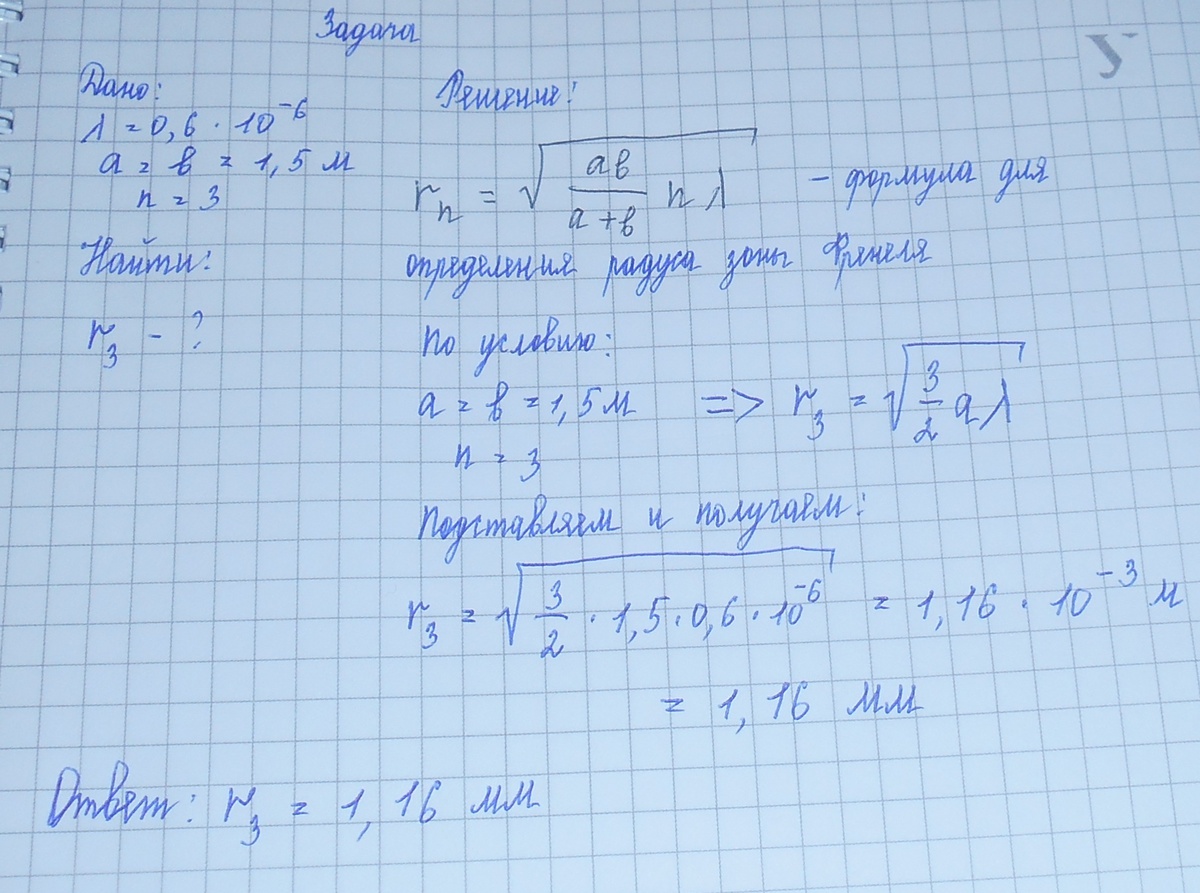 Задача
У
Дано:
λ = 0,6 · 10⁻⁶
a = b = 1,5 м
n = 3
Найти:
r₃ - ?
Решение:
rₙ = √(ab/(a+b) n λ) - формула для
определения радуса зоны Френеля
По условию:
a = b = 1,5 м => r₃ = √(3/2 a λ)
n = 3
Подставляем и получаем:
r₃ = √(3/2 · 1,5 · 0,6 · 10⁻⁶) = 1,16 · 10⁻³ м
= 1,16 мм
Ответ: r₃ = 1,16 мм